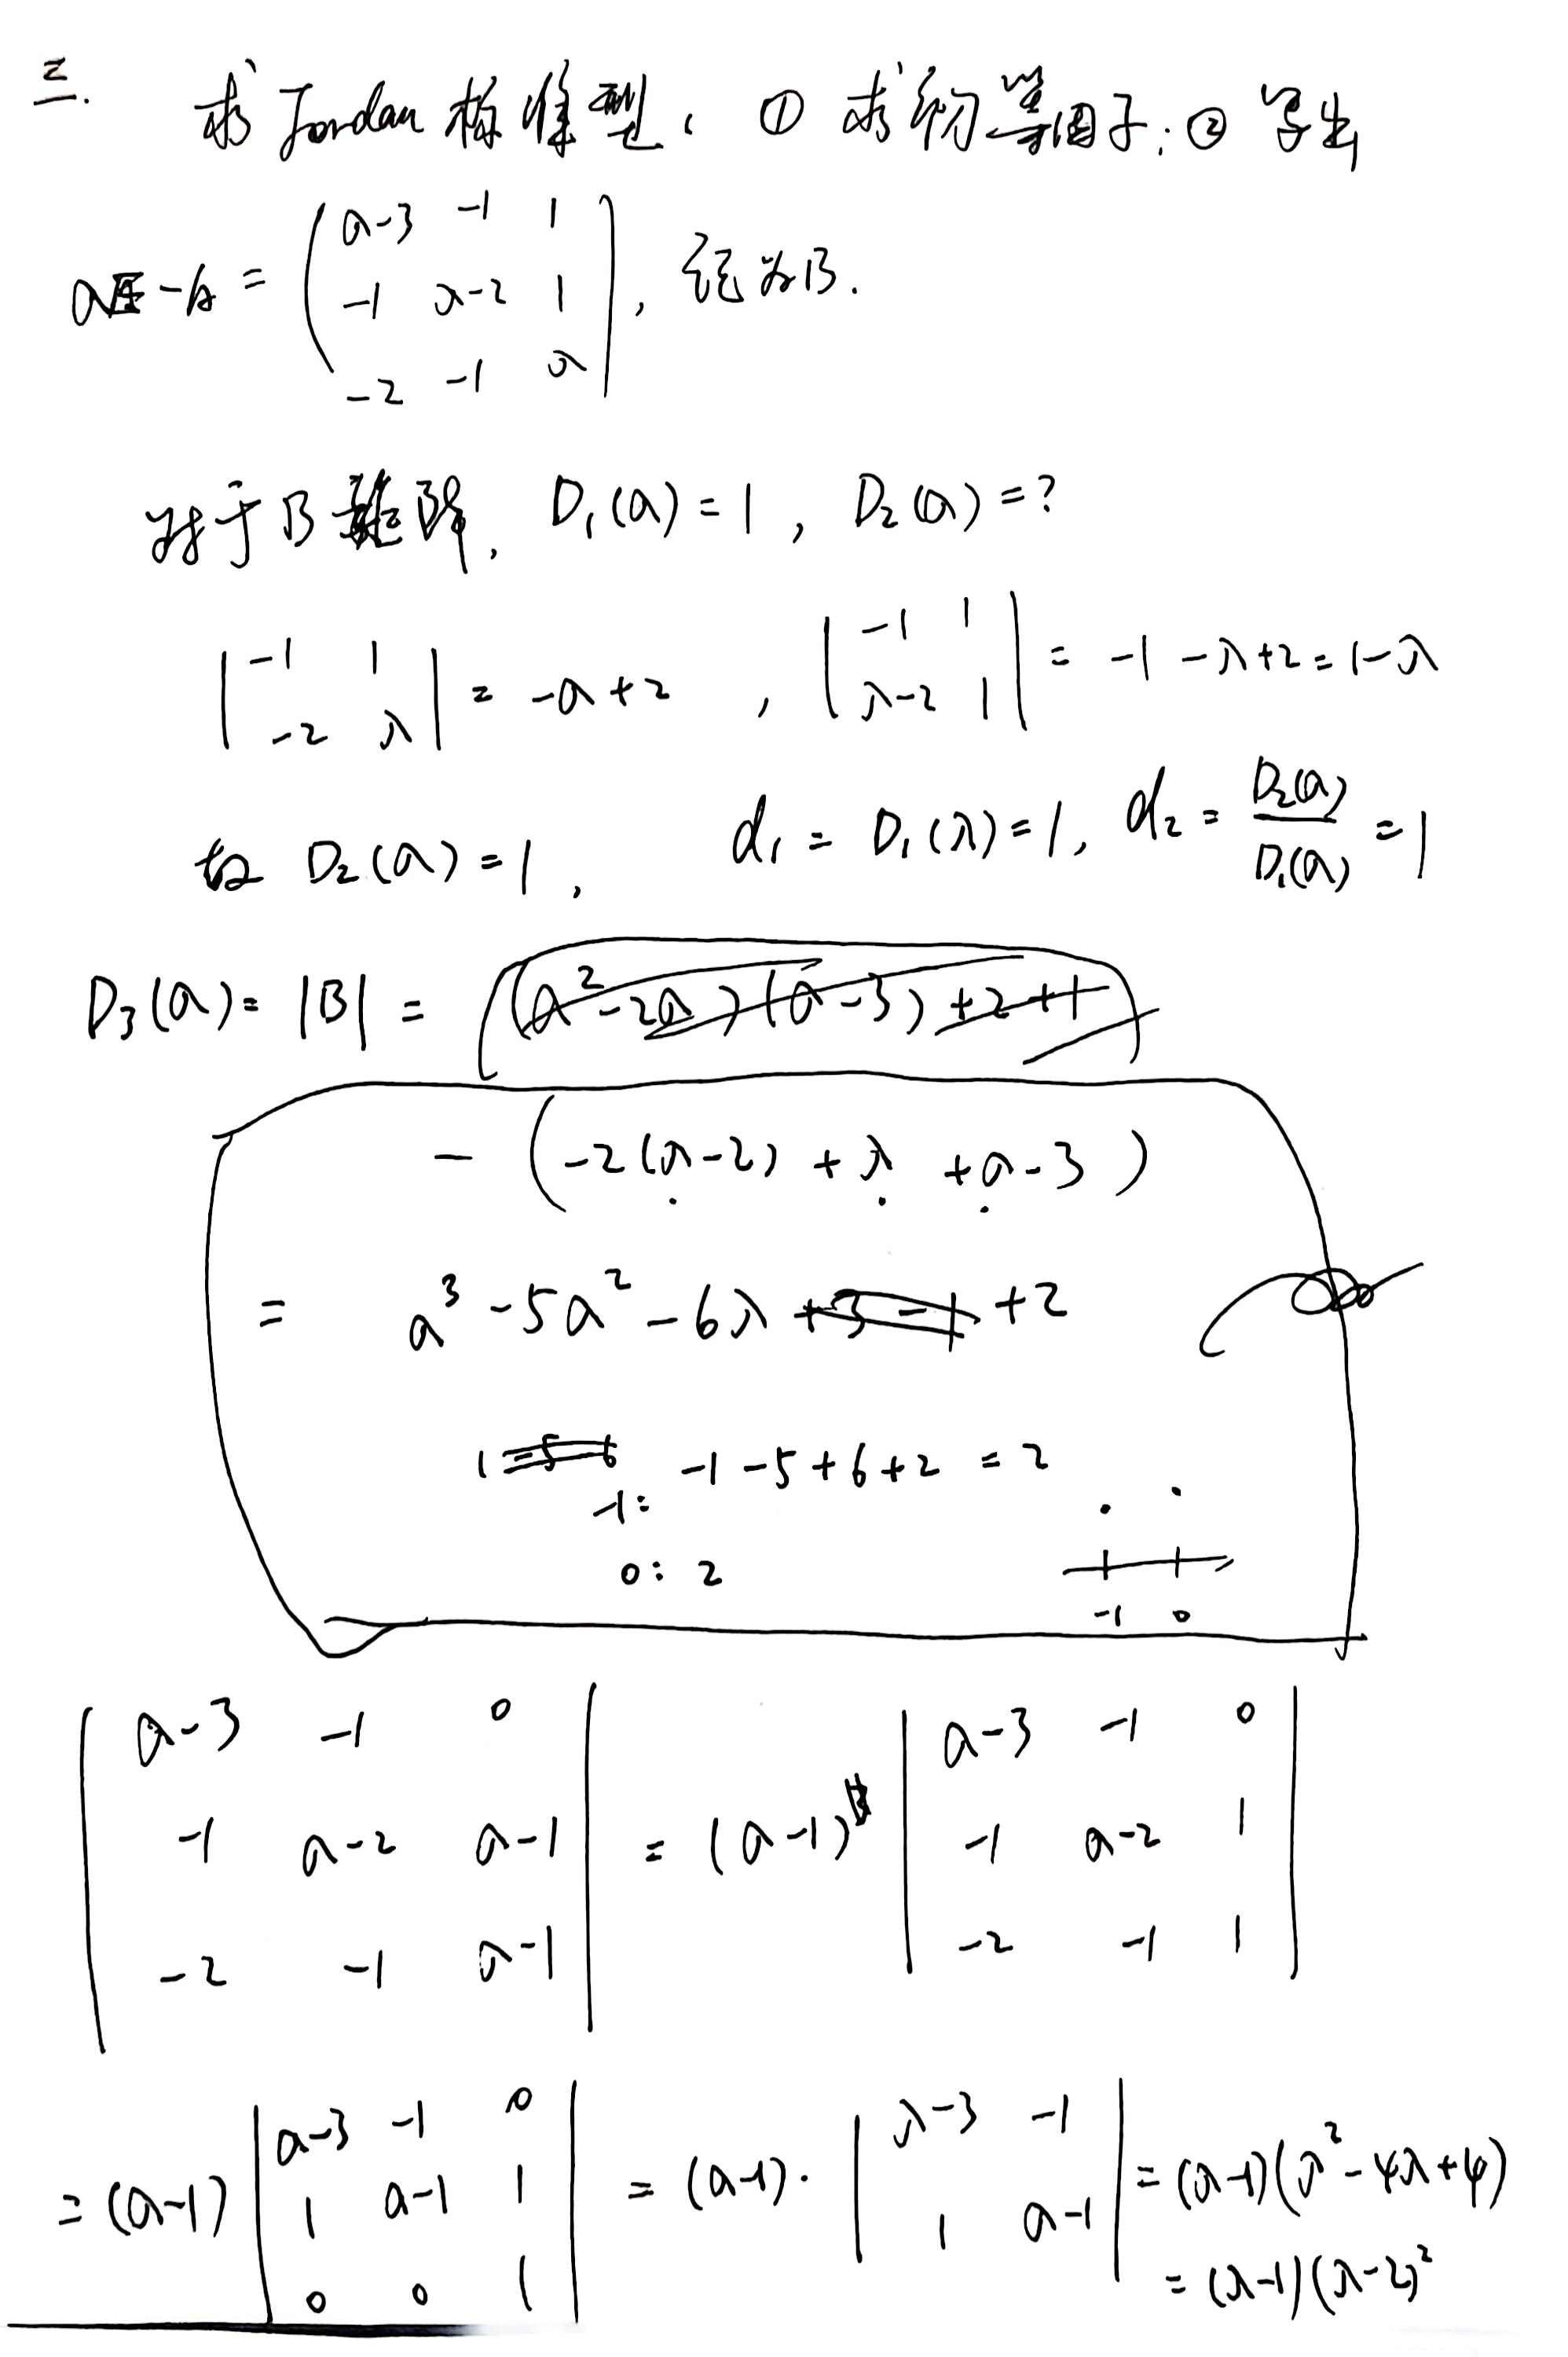 三. 求Jordan标准型. ① 求初等因子; ② 写出
λE-A = ( λ-3 -1 1
-1 λ-2 1
-2 -1 λ ), 记为B.
对于B矩阵, D₁(λ)=1, D₂(λ)=?
| -1 1 ; -2 λ | = -λ+2 , | -1 1 ; λ-2 1 | = -1-λ+2=1-λ
故 D₂(λ)=1, d₁ = D₁(λ)=1, d₂ = D₂(λ)/D₁(λ) =1
D₃(λ)= |B| = (λ²-2λ)(λ-3)+2+1
- (-2(λ-2) + λ + λ-3 )
= λ³-5λ²-6λ +3-1 +2
1-5-6 -1-5+6+2 = 2
-1:
0: 2
-1 0
| λ-3 -1 0 ; -1 λ-2 λ-1 ; -2 -1 λ-1 | = (λ-1) | λ-3 -1 0 ; -1 λ-2 1 ; -2 -1 1 |
= (λ-1) | λ-3 -1 0 ; 1 λ-1 1 ; 0 0 1 | = (λ-1)· | λ-3 -1 ; 1 λ-1 | = (λ-1)(λ²-4λ+4)
= (λ-1)(λ-2)²